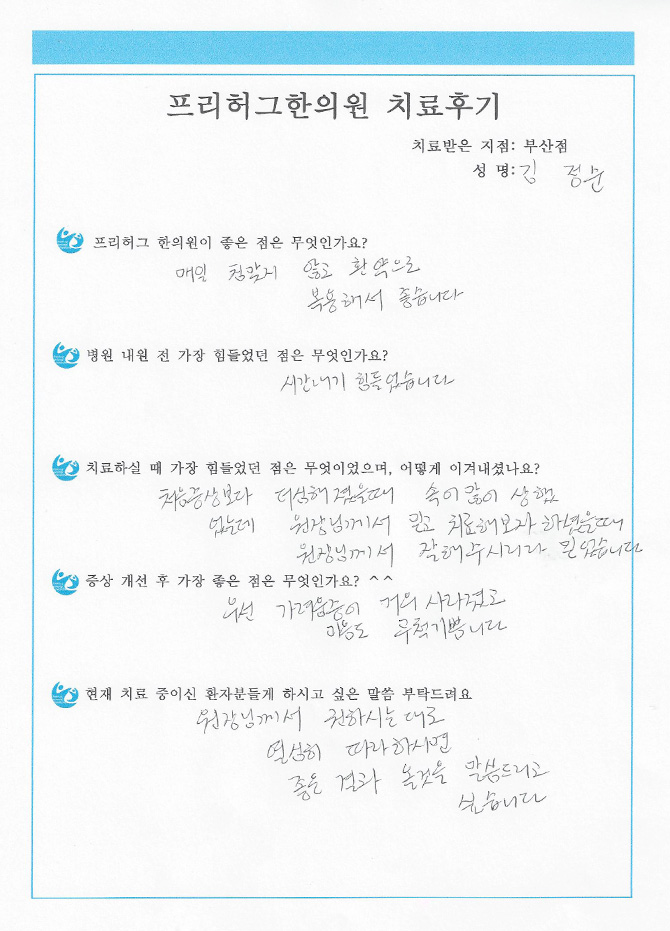 프리허그한의원 치료후기
치료받은 지점: 부산점
성 명: 김 정순
프리허그 한의원이 좋은 점은 무엇인가요?
매일 침맞지 않고 환약으로
복용해서 좋습니다
병원 내원 전 가장 힘들었던 점은 무엇인가요?
시간내기 힘들었습니다
치료하실 때 가장 힘들었던 점은 무엇이었으며, 어떻게 이겨내셨나요?
처음증상보다 더심해졌을때 속이많이 상했
었는데 원장님께서 믿고 치료해보자 하셨을때
원장님께서 잘해주시리라 믿었습니다
증상 개선 후 가장 좋은 점은 무엇인가요? ^^
우선 가려움증이 거의 사라졌고
마음도 무척기쁩니다
현재 치료 중이신 환자분들게 하시고 싶은 말씀 부탁드려요
원장님께서 권하시는대로
열심히 따라하시면
좋은 결과 올것을 말씀드리고
싶습니다